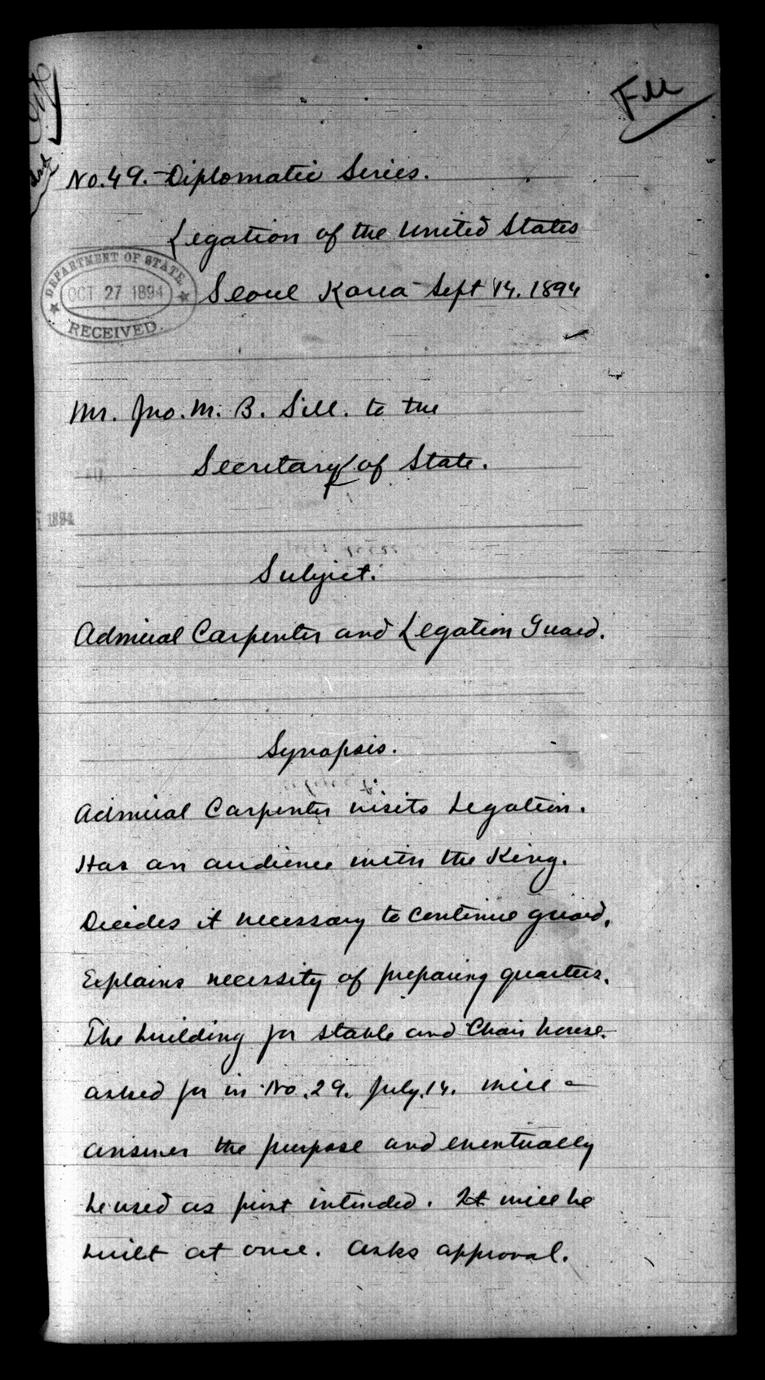 Fm
No. 49. Diplomatic Series.
Legation of the United States
DEPARTMENT OF STATE.
OCT 27 1894
RECEIVED.
Seoul Korea Sept 14. 1894
Mr. Jno. M. B. Sill. to the
Secretary of State.
1894
Subject.
Admiral Carpenter and Legation Guard.
Synopsis.
Admiral Carpenter visits Legation.
Has an audience with the King.
Decides it necessary to continue guard.
Explains necessity of preparing quarters.
The building for stable and Chair house
asked for in No. 29. July 14. will
answer the purpose and eventually
be used as first intended. It will be
built at once. Asks approval.